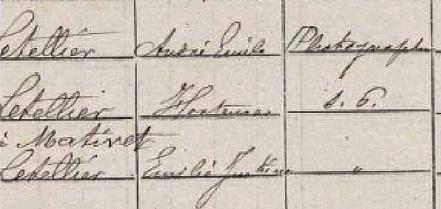 Letellier André Emile Photographe
Letellier Hortense s. p.
Mativet
Letellier Emilie Justine "